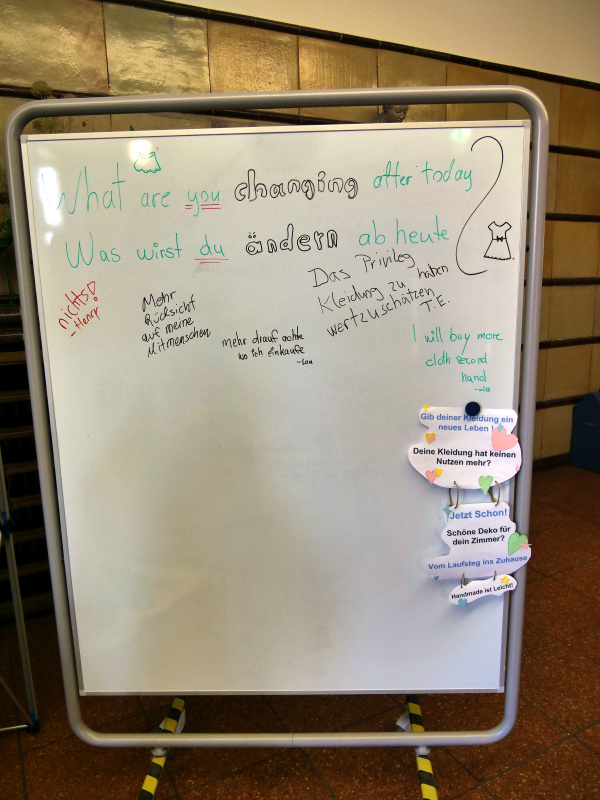 What are you changing after today
Was wirst du ändern ab heute
?
nichts!
- Henry
Mehr
Rücksicht
auf meine
Mitmenschen
mehr drauf achte
wo ich einkaufe
- Lou
Das Privileg
Kleidung zu haben
wertzuschätzen
T.E.
I will buy more
cloth second
hand
Gib deiner Kleidung ein
neues Leben !
Deine Kleidung hat keinen
Nutzen mehr?
Jetzt Schon!
Schöne Deko für
dein Zimmer?
Vom Laufsteg ins Zuhause
Handmade ist Leicht!